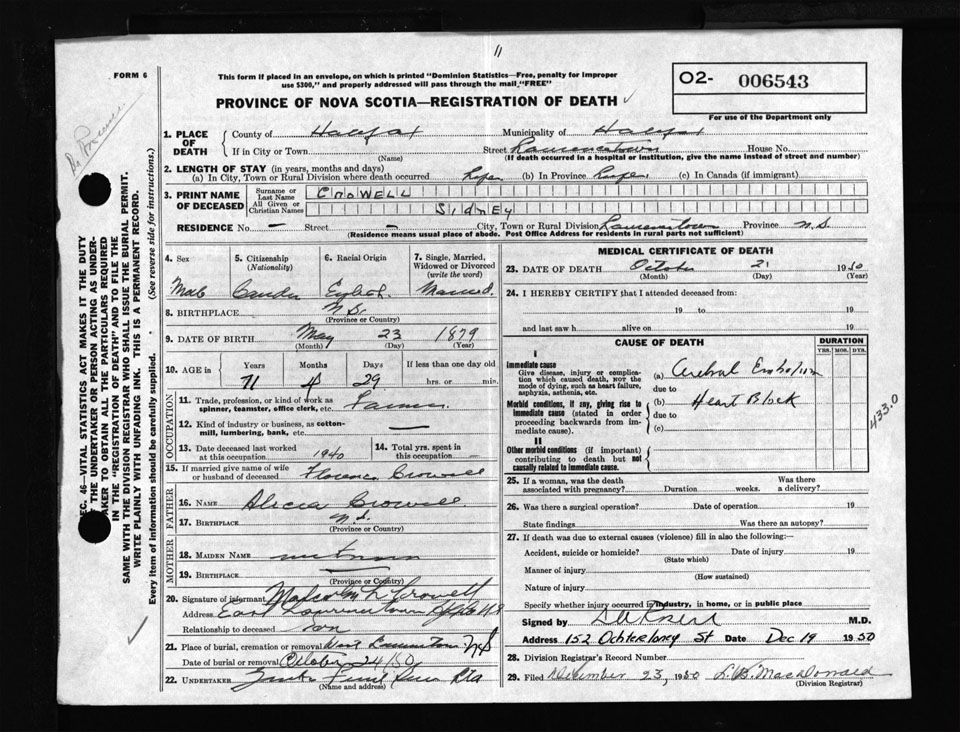 11
FORM 6
This form if placed in an envelope, on which is printed "Dominion Statistics—Free, penalty for improper
use $300," and properly addressed will pass through the mail "FREE"
O2- 006543
For use of the Department only
PROVINCE OF NOVA SCOTIA—REGISTRATION OF DEATH
1. PLACE OF DEATH
County of Halifax Municipality of Halifax
If in City or Town (Name) Street Lawrencetown House No.
(If death occurred in a hospital or institution, give the name instead of street and number)
2. LENGTH OF STAY (in years, months and days)
(a) In City, Town or Rural Division where death occurred Life (b) In Province Life (c) In Canada (if immigrant)
3. PRINT NAME OF DECEASED
Surname or Last Name CROWELL
All Given or Christian Names SIDNEY
RESIDENCE No. — Street — City, Town or Rural Division Lawrencetown Province N.S.
(Residence means usual place of abode. Post Office Address for residents in rural parts not sufficient)
4. Sex
5. Citizenship (Nationality)
6. Racial Origin
7. Single, Married, Widowed or Divorced (write the word)
Male English Married
8. BIRTHPLACE N.S.
(Province or Country)
9. DATE OF BIRTH May 23 1879
(Month) (Day) (Year)
10. AGE in Years Months Days If less than one day old
71 4 29 hrs. or min.
OCCUPATION
11. Trade, profession, or kind of work as spinner, teamster, office clerk, etc. Farmer
12. Kind of industry or business, as cotton-mill, lumbering, bank, etc. —
13. Date deceased last worked at this occupation 1940
14. Total yrs. spent in this occupation
15. If married give name of wife or husband of deceased Florence Crowell
FATHER
16. NAME Crowell
17. BIRTHPLACE N.S.
(Province or Country)
MOTHER
18. MAIDEN NAME unknown
19. BIRTHPLACE —
(Province or Country)
20. Signature of informant Malcolm L Crowell
Address East Lawrencetown
Relationship to deceased son
21. Place of burial, cremation or removal West Lawrencetown N.S
Date of burial or removal October 24/50
22. UNDERTAKER
(Name and address)
MEDICAL CERTIFICATE OF DEATH
23. DATE OF DEATH October 21 1950
(Month) (Day) (Year)
24. I HEREBY CERTIFY that I attended deceased from:
19 to 19
and last saw h alive on 19
CAUSE OF DEATH DURATION
YRS. MOS. DYS.
I
Immediate cause
Give disease, injury or complication which caused death, NOT the mode of dying, such as heart failure, asphyxia, asthenia, etc.
(a) Cerebral Embolism
due to
Morbid conditions, if any, giving rise to immediate cause (stated in order proceeding backwards from immediate cause).
(b) Heart Block
due to
(c)
II
Other morbid conditions (if important) contributing to death but not causally related to immediate cause.
433.0
25. If a woman, was the death associated with pregnancy? Duration weeks. Was there a delivery?
26. Was there a surgical operation? Date of operation 19
State findings Was there an autopsy?
27. If death was due to external causes (violence) fill in also the following:—
Accident, suicide or homicide? Date of injury 19
(State which)
Manner of injury
(How sustained)
Nature of injury
Specify whether injury occurred in industry, in home, or in public place
Signed by M.D.
Address 152 Ochterloney St Date Dec 19 1950
28. Division Registrar's Record Number
29. Filed December 23, 1950 L.B. MacDonald
(Division Registrar)
SEC. 46—VITAL STATISTICS ACT MAKES IT THE DUTY
OF THE UNDERTAKER OR PERSON ACTING AS UNDERTAKER TO OBTAIN ALL THE PARTICULARS REQUIRED
IN THE "REGISTRATION OF DEATH" AND TO FILE THE
SAME WITH THE DIVISION REGISTRAR WHO SHALL ISSUE THE BURIAL PERMIT.
WRITE PLAINLY WITH UNFADING INK. THIS IS A PERMANENT RECORD.
Every item of information should be carefully supplied. (See reverse side for instructions.)